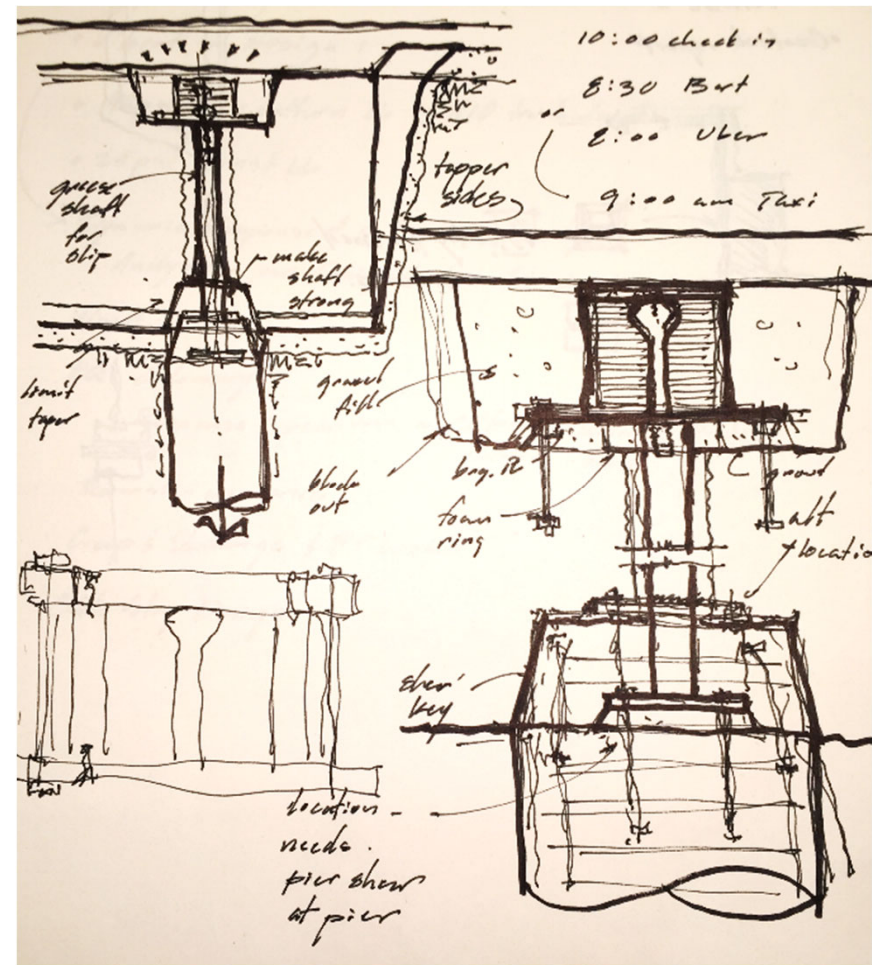 10:00 check in
8:30 Bart
or
8:00 Uber
9:00 am Taxi
tapper
sides
grease
shaft
for
slip
make
shaft
strong
limit
taper
grout
fill
block
out
brg. PL
foam
ring
alt
location
shear
key
location
needs
pier shear
at pier